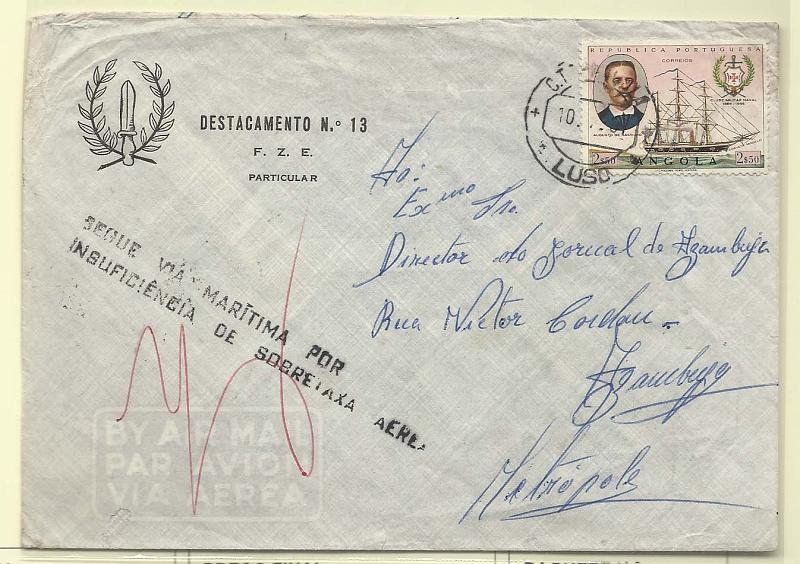 DESTACAMENTO N.º 13
F. Z. E.
PARTICULAR
REPUBLICA PORTUGUESA
CORREIOS
CLUBE MILITAR NAVAL
2$50 ANGOLA 2$50
10
LUSO
Ao:
Exmo Sr.
Director do Jornal de Azambuja
Rua Victor Cordon -
Azambuja
Metrópole
SEGUE VIA MARÍTIMA POR
INSUFICIÊNCIA DE SOBRETAXA AEREA
BY AIR MAIL
PAR AVION
VIA AEREA